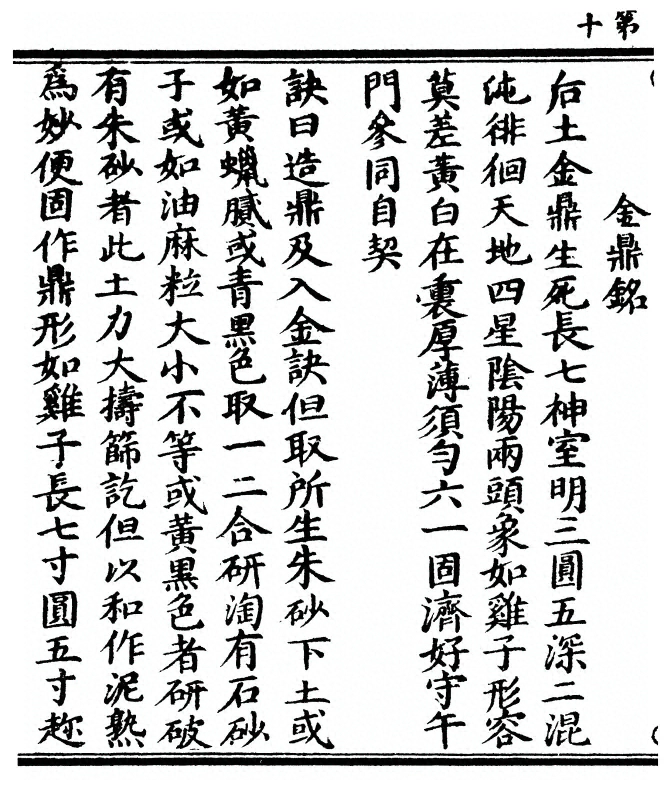 第十
金鼎銘
后土金鼎生死長七神室明三圓五深二混
沌徘徊天地四星陰陽兩頭象如雞子形容
莫差黃白在裏厚薄須勻六一固濟好守午
門參同自契
訣曰造鼎及入金訣但取所生朱砂下土或
如黃蠟膩或青黑色取一二合研淘有石砂
子或如油麻粒大小不等或黃黑色者研破
有朱砂者此土力大擣篩訖但以和作泥熟
為妙便固作鼎形如雞子長七寸圓五寸趂